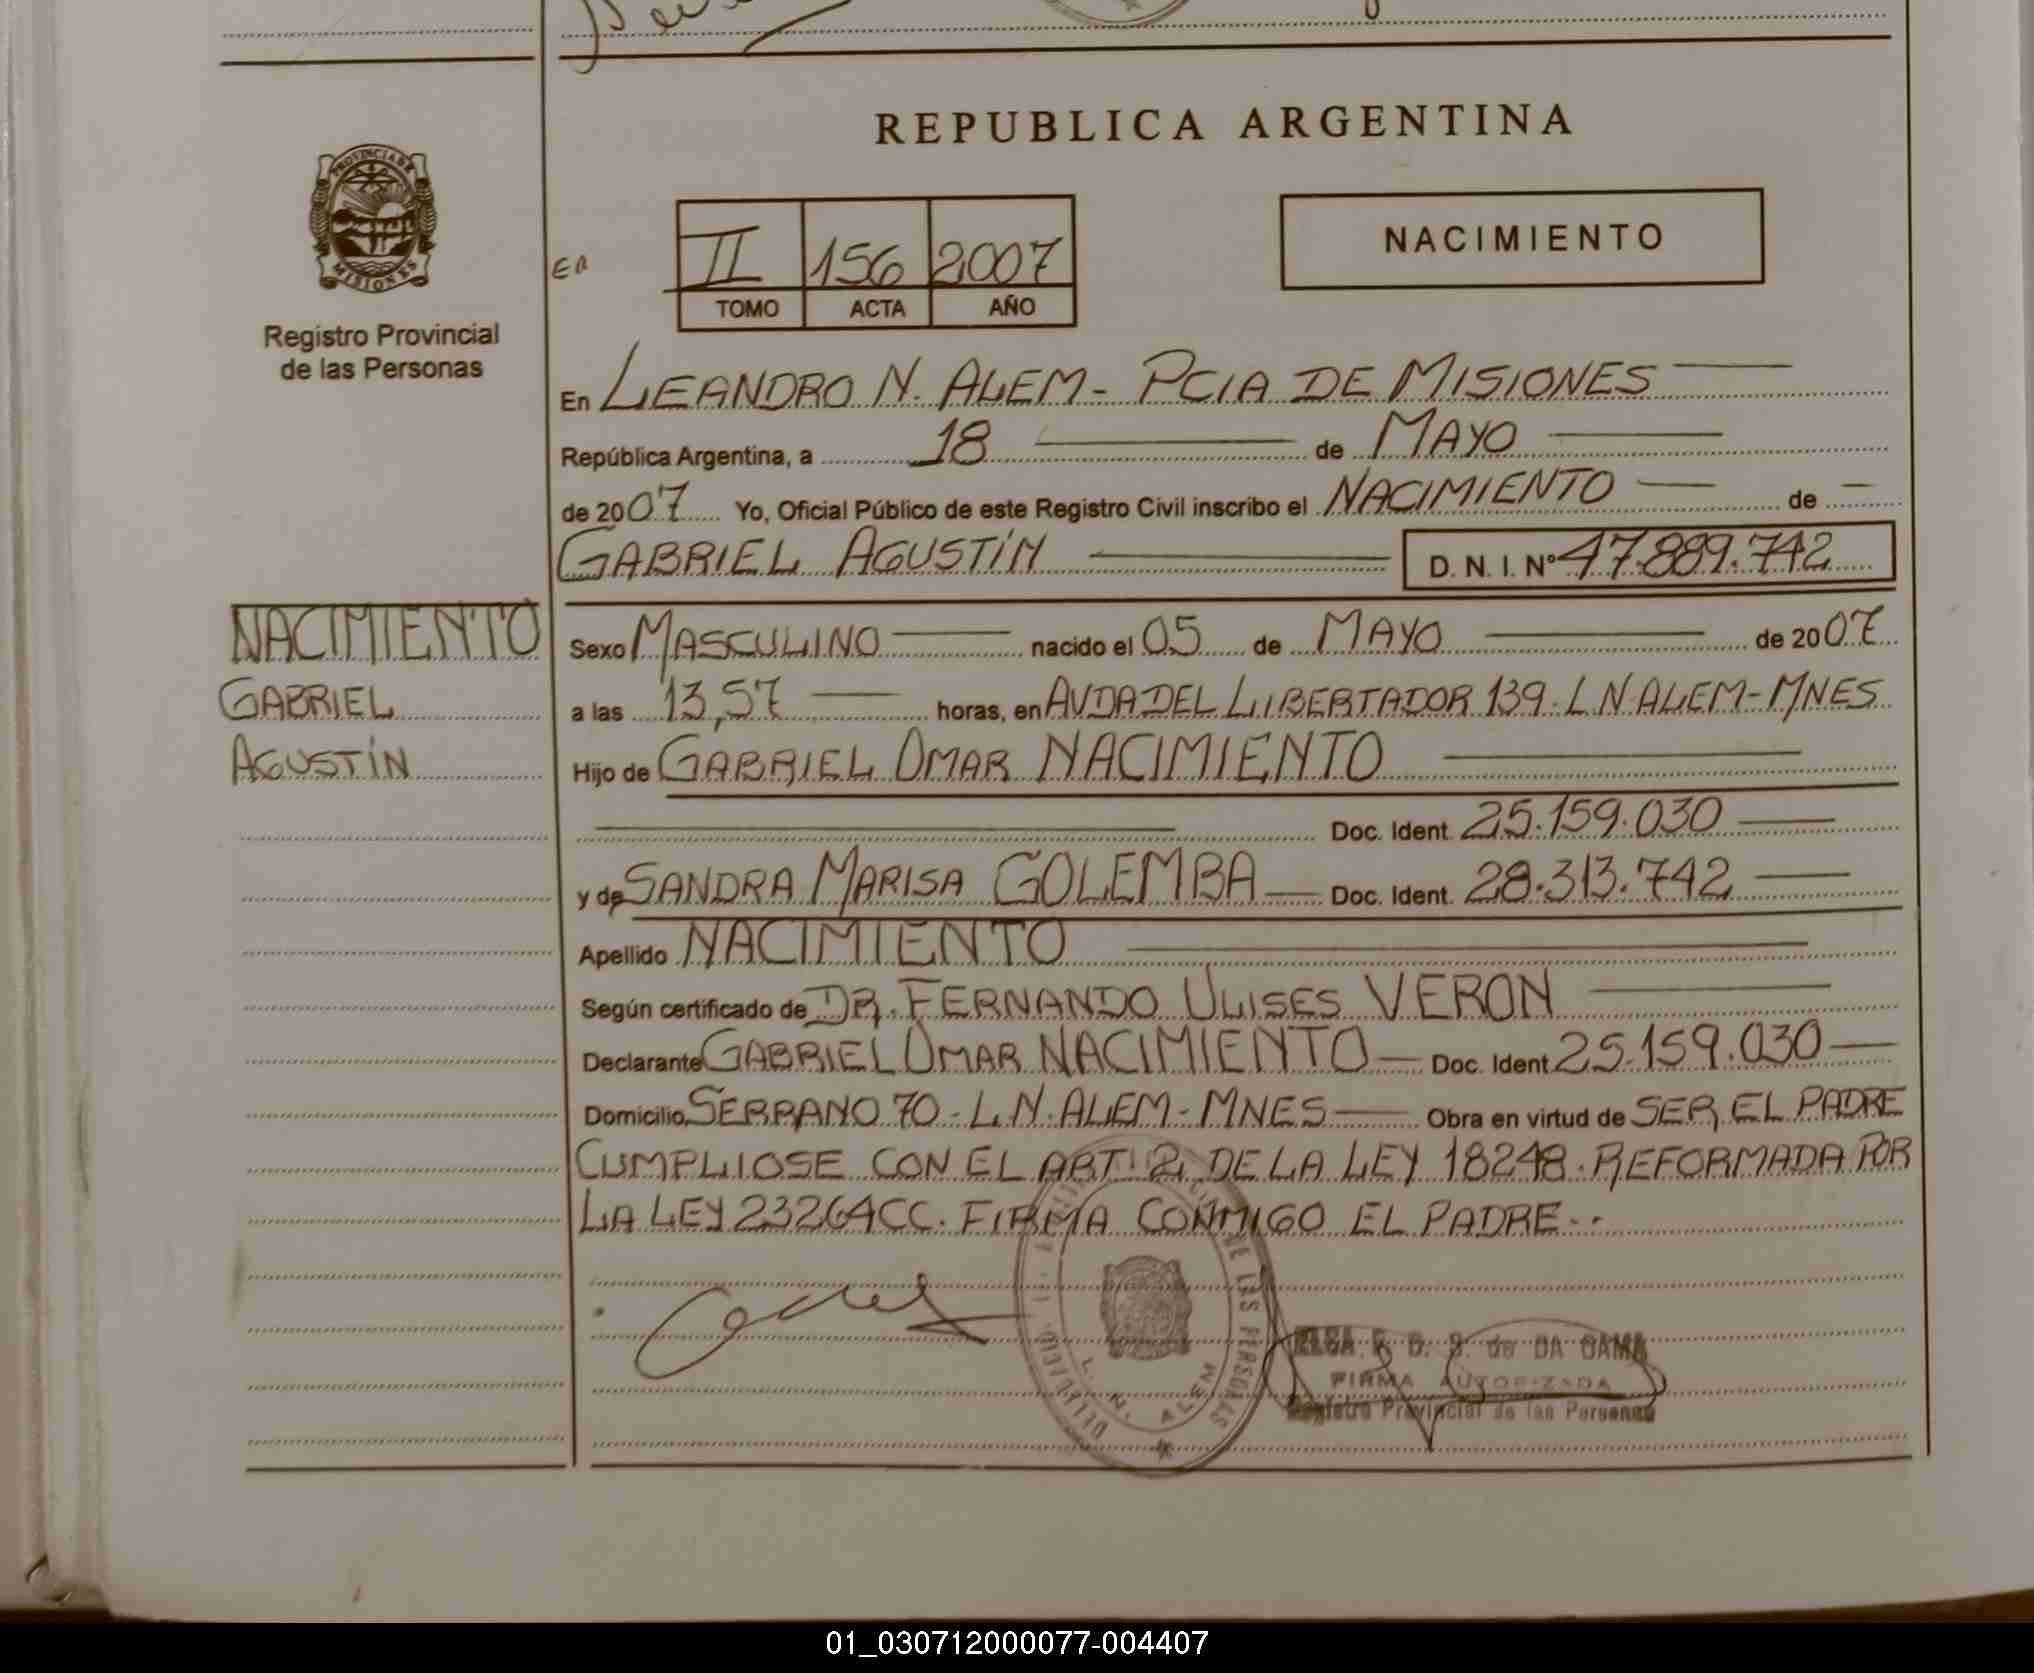 REPUBLICA ARGENTINA
PROVINCIA DE
MISIONES
Registro Provincial
de las Personas
NACIMIENTO
II 156 2007
TOMO ACTA AÑO
En LEANDRO N. ALEM - PCIA DE MISIONES
República Argentina, a 18 de MAYO
de 2007 Yo, Oficial Público de este Registro Civil inscribo el NACIMIENTO de
GABRIEL AGUSTÍN D. N. I. Nº 47.889.742
NACIMIENTO
GABRIEL
AGUSTÍN
Sexo MASCULINO nacido el 05 de MAYO de 2007
a las 13,57 horas, en AVDA DEL LIBERTADOR 139. L N. ALEM - MNES
Hijo de GABRIEL OMAR NACIMIENTO
Doc. Ident. 25.159.030
y de SANDRA MARISA GOLEMBA Doc. Ident. 28.313.742
Apellido NACIMIENTO
Según certificado de DR. FERNANDO ULISES VERON
Declarante GABRIEL OMAR NACIMIENTO Doc. Ident. 25.159.030
Domicilio SERRANO 70 - L.N. ALEM - MNES Obra en virtud de SER EL PADRE
CUMPLIOSE CON EL ART. 2 DE LA LEY 18248. REFORMADA POR
LA LEY 23264CC. FIRMA CONMIGO EL PADRE. -
DE LAS PERSONAS
L. N. ALEM
de DA GAMA
FIRMA AUTORIZADA
Registro Provincial de las Personas
01_030712000077-004407